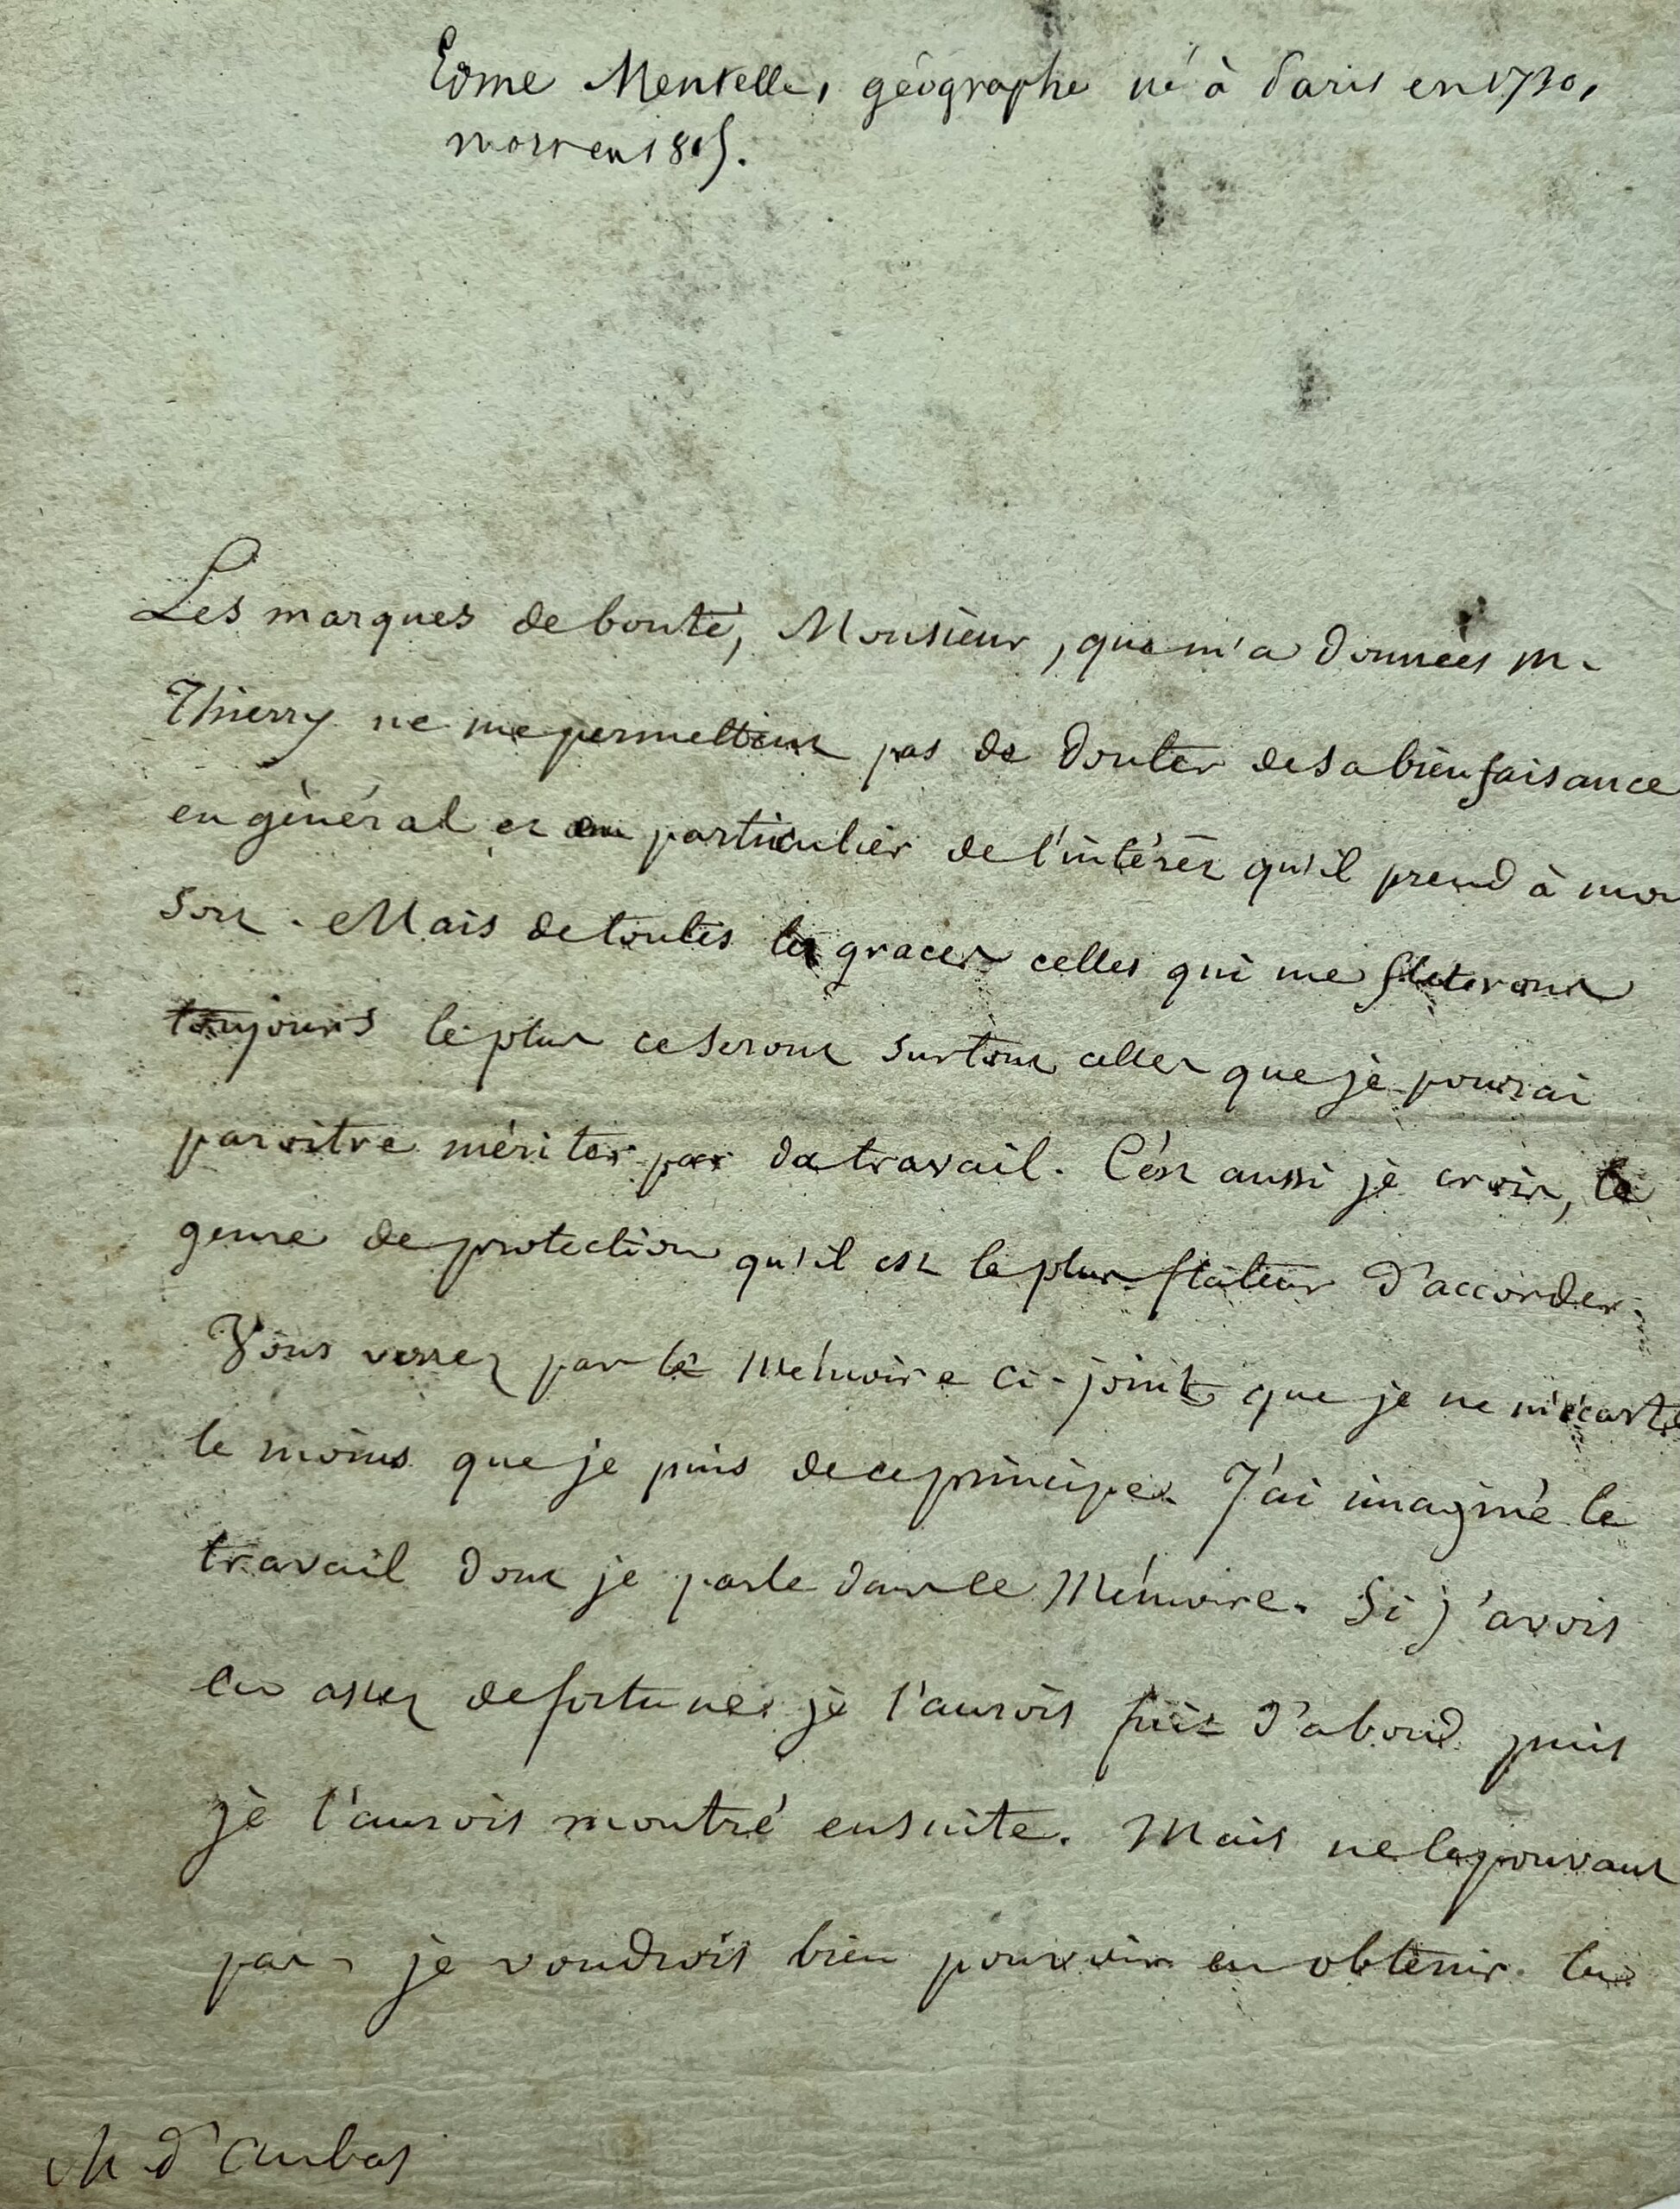 Edme Mentelle, géographe né à Paris en 1730,
mort en 1815.
Les marques de bonté, Monsieur, que m'a données M.
Thierry ne me permettent pas de douter de sa bienfaisance
en général et en particulier de l'intérêt qu'il prend à mon
sort. Mais de toutes les graces celles qui me flateront
toujours le plus ce seront surtout celles que je pourrai
paroitre mériter par du travail. C'est aussi je crois, le
genre de protection qu'il est le plus flateur d'accorder.
Vous verrez par le mémoire ci-joint que je ne m'écarte
le moins que je puis de ce principe. J'ai imaginé le
travail dont je parle dans le Mémoire. Si j'avois
eu assez de fortune je l'aurois fait d'abord puis
je l'aurois montré ensuite. Mais ne le pouvant
pas, je voudrois bien pouvoir en obtenir les
M d'Aubas